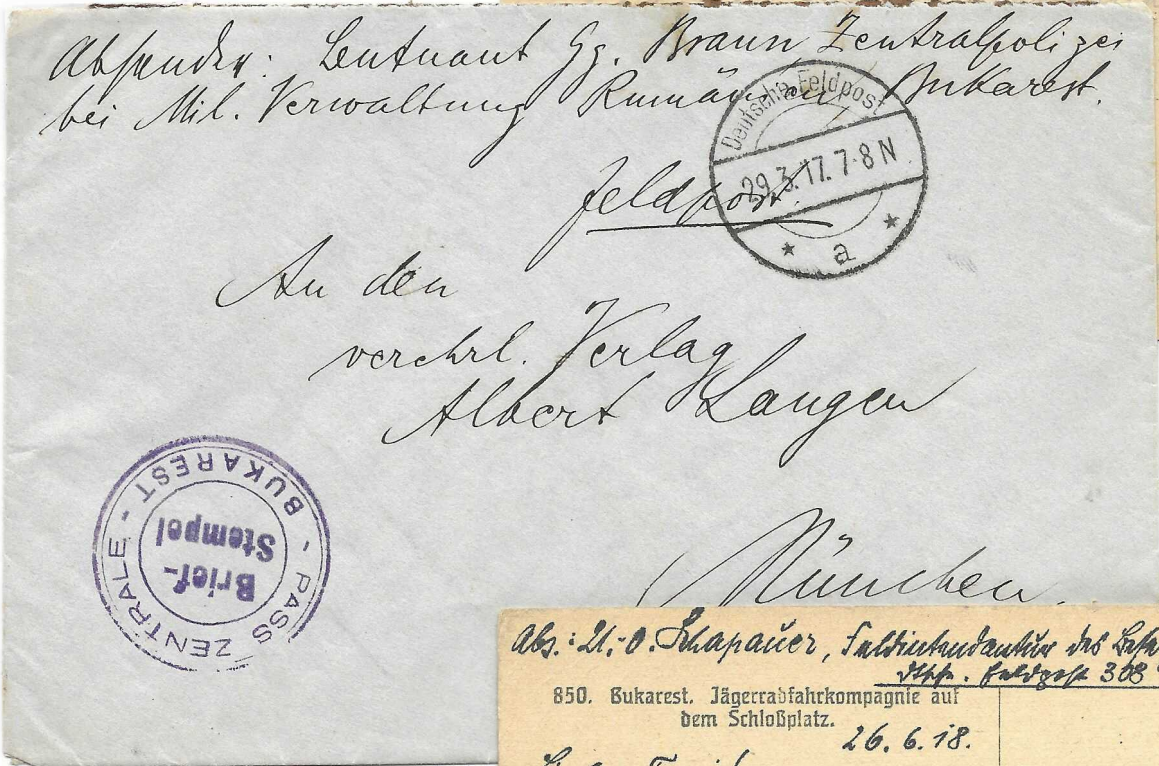 Absender: Leutnant Gg. Braun Zentralpolizei
bei Mil. Verwaltung Rumänien Bukarest.
Deutsche Feldpost
29.3.17.7-8N
* a *
Feldpost.
An den
verehrl. Verlag
Albert Langen
München.
- BUKAREST -
PASS ZENTRALE
Brief-
Stempel
Abs.: U.-O. Schapauer, Feldintendantur des
Feldpost 308
850. Bukarest. Jägerradfahrkompagnie auf
dem Schloßplatz.
26.6.18.